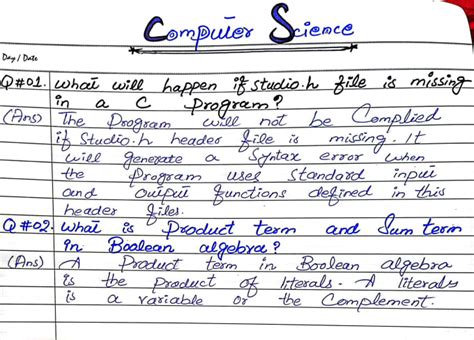 Computer Science
Day / Date
Q#01. what will happen if studio.h file is missing
in a C Program?
(Ans) The Program will not be Complied
if Studio.h header file is missing. It
will generate a Syntax error when
the Program uses Standard input
and output functions defined in this
header files.
Q #02. what is Product term and Sum term
in Boolean algebra?
(Ans) A Product term in Boolean algebra
is the product of literals. A literals
is a variable or the Complement.